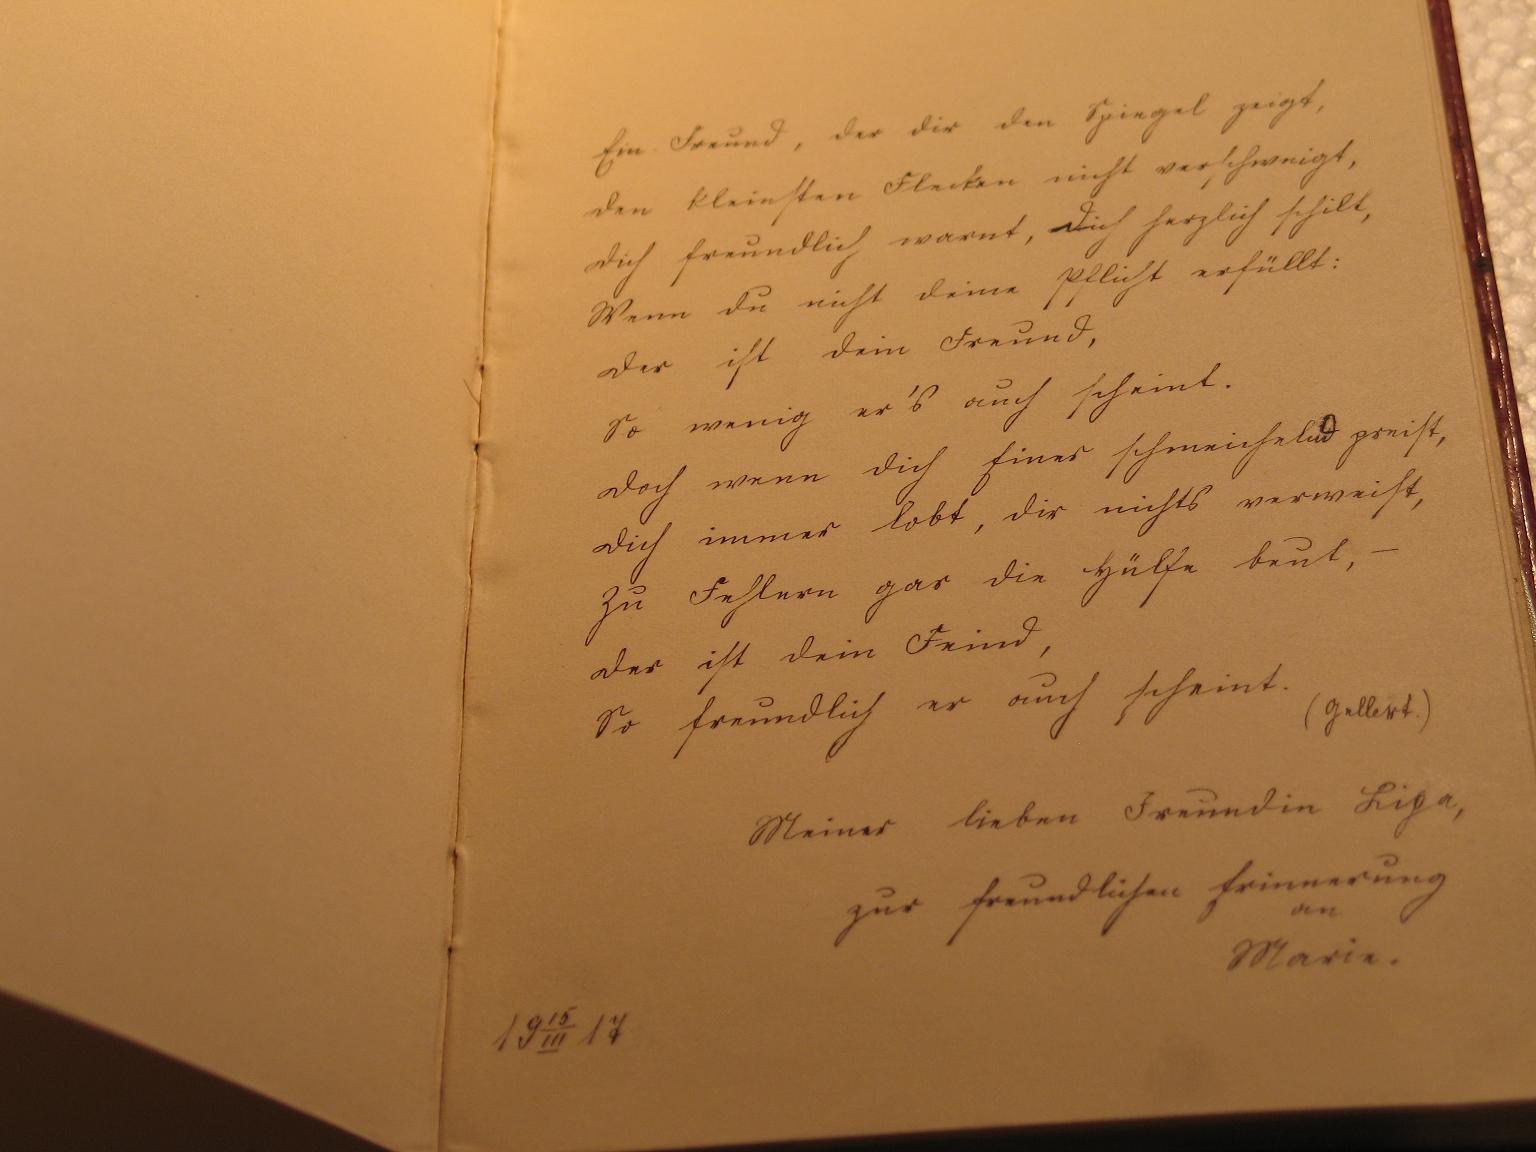 Ein Freund, der dir den Spiegel zeigt,
den kleinsten Flecken nicht verschweigt,
dich freundlich warnt, dich herzlich schilt,
Wenn du nicht deine Pflicht erfüllt:
der ist dein Freund,
So wenig er's auch scheint.
doch wenn dich Einer schmeichelnd preist,
dich immer lobt, dir nichts verweist,
Zu Fehlern gar die Hülfe beut, –
der ist dein Feind,
So freundlich er auch scheint.
(Gellert.)
Meiner lieben Freundin
zur freundlichen Erinnerung
an
Marie.
19 15/III 17